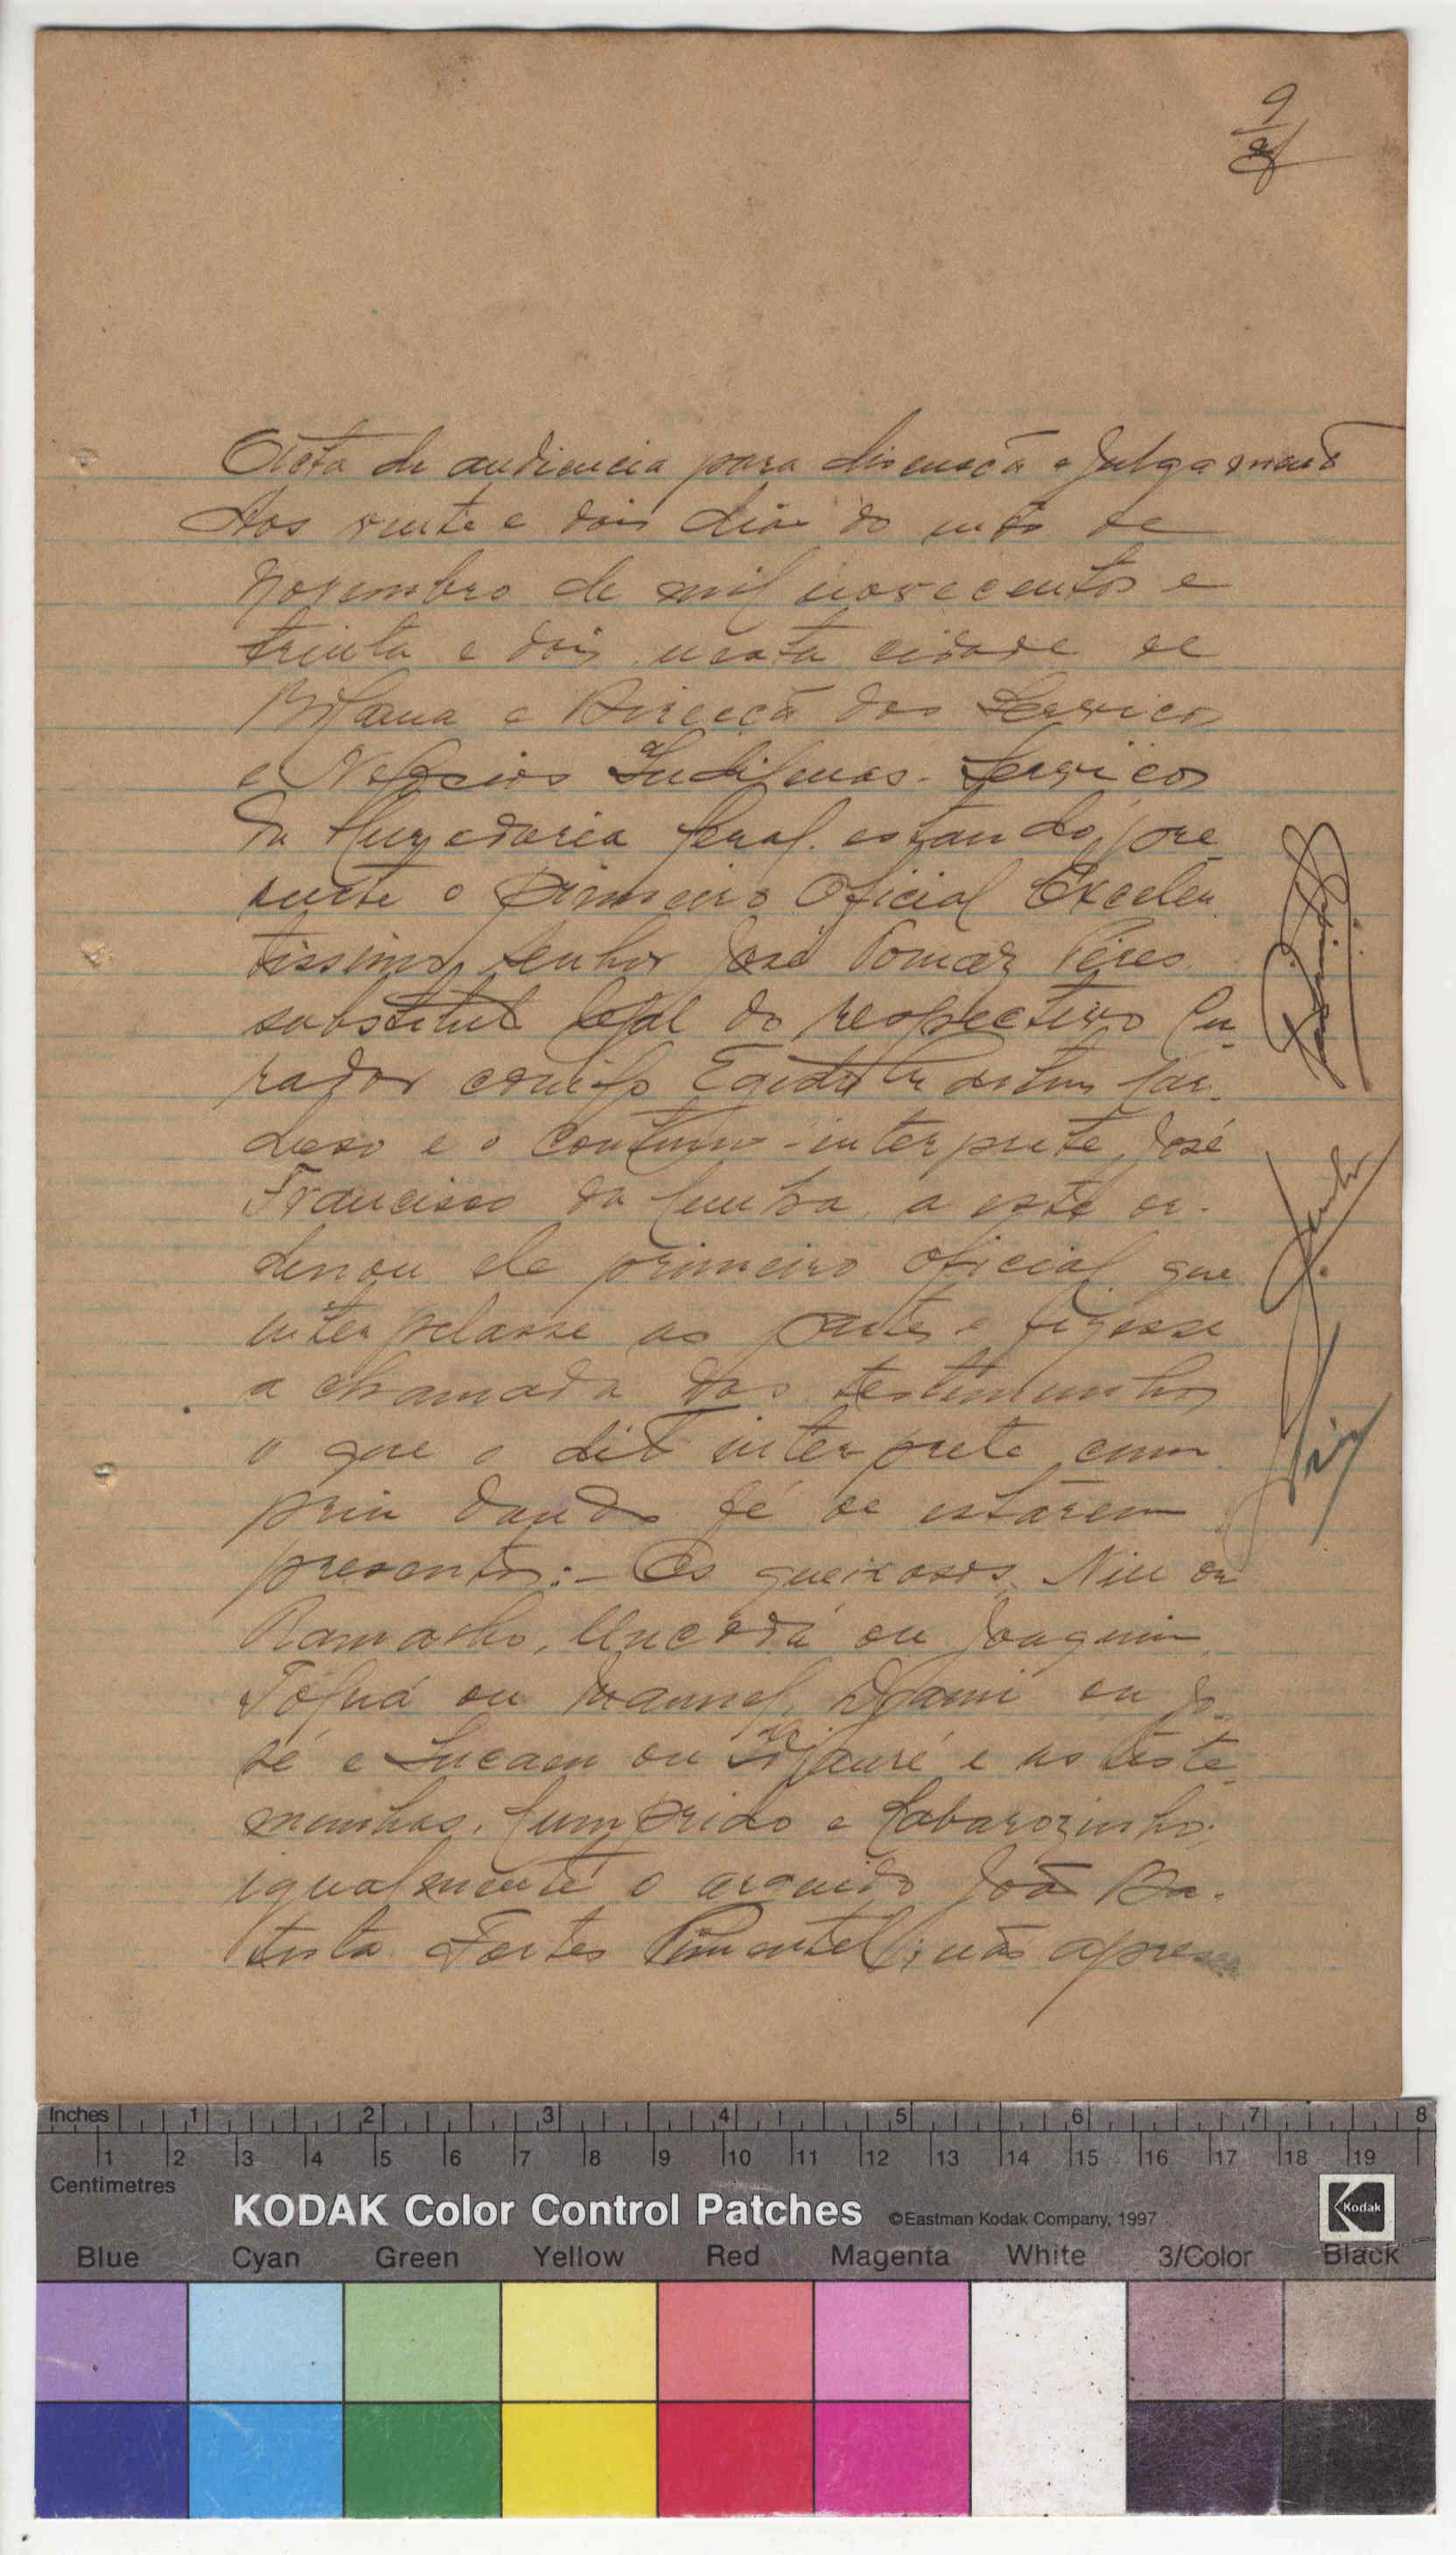 9
Acta de audiencia para discução e Julgamento
Aos vinte e dois dias do mês de
Novembro de mil novecentos e
trinta e dois nesta cidade de
Bolama e Direcção dos Serviços
e Negocios Indigenas - Serviços
da Curadoria Geral, estando pre-
sente o primeiro Oficial Excelen-
tissimo senhor José Tomaz Peres
substituto legal do respectivo Cu-
rador comigo Egidio Car-
doso e o continuo-interprete, José
Francisco da Cunha, a este or-
denou ele primeiro oficial que
interpelasse as partes e fizesse
a chamada das testimunhas
o que o dito interprete cum-
priu dando fé de estarem
presentes:- Os queixosos, Niu ou
Ramasho, Uncodá ou Joaquim,
Tófná ou Manuel, Djami ou Jo-
sé e Lucam ou Djauré e as teste-
munhas, Cumprido e Cobarozinho;
igualmente o arguido João Ba-
tista Fortes Pimentel; não apresen
Inches 1 2 3 4 5 6 7 8
1 2 3 4 5 6 7 8 9 10 11 12 13 14 15 16 17 18 19
Centimetres
KODAK Color Control Patches ©Eastman Kodak Company, 1997
Kodak
Blue Cyan Green Yellow Red Magenta White 3/Color Black